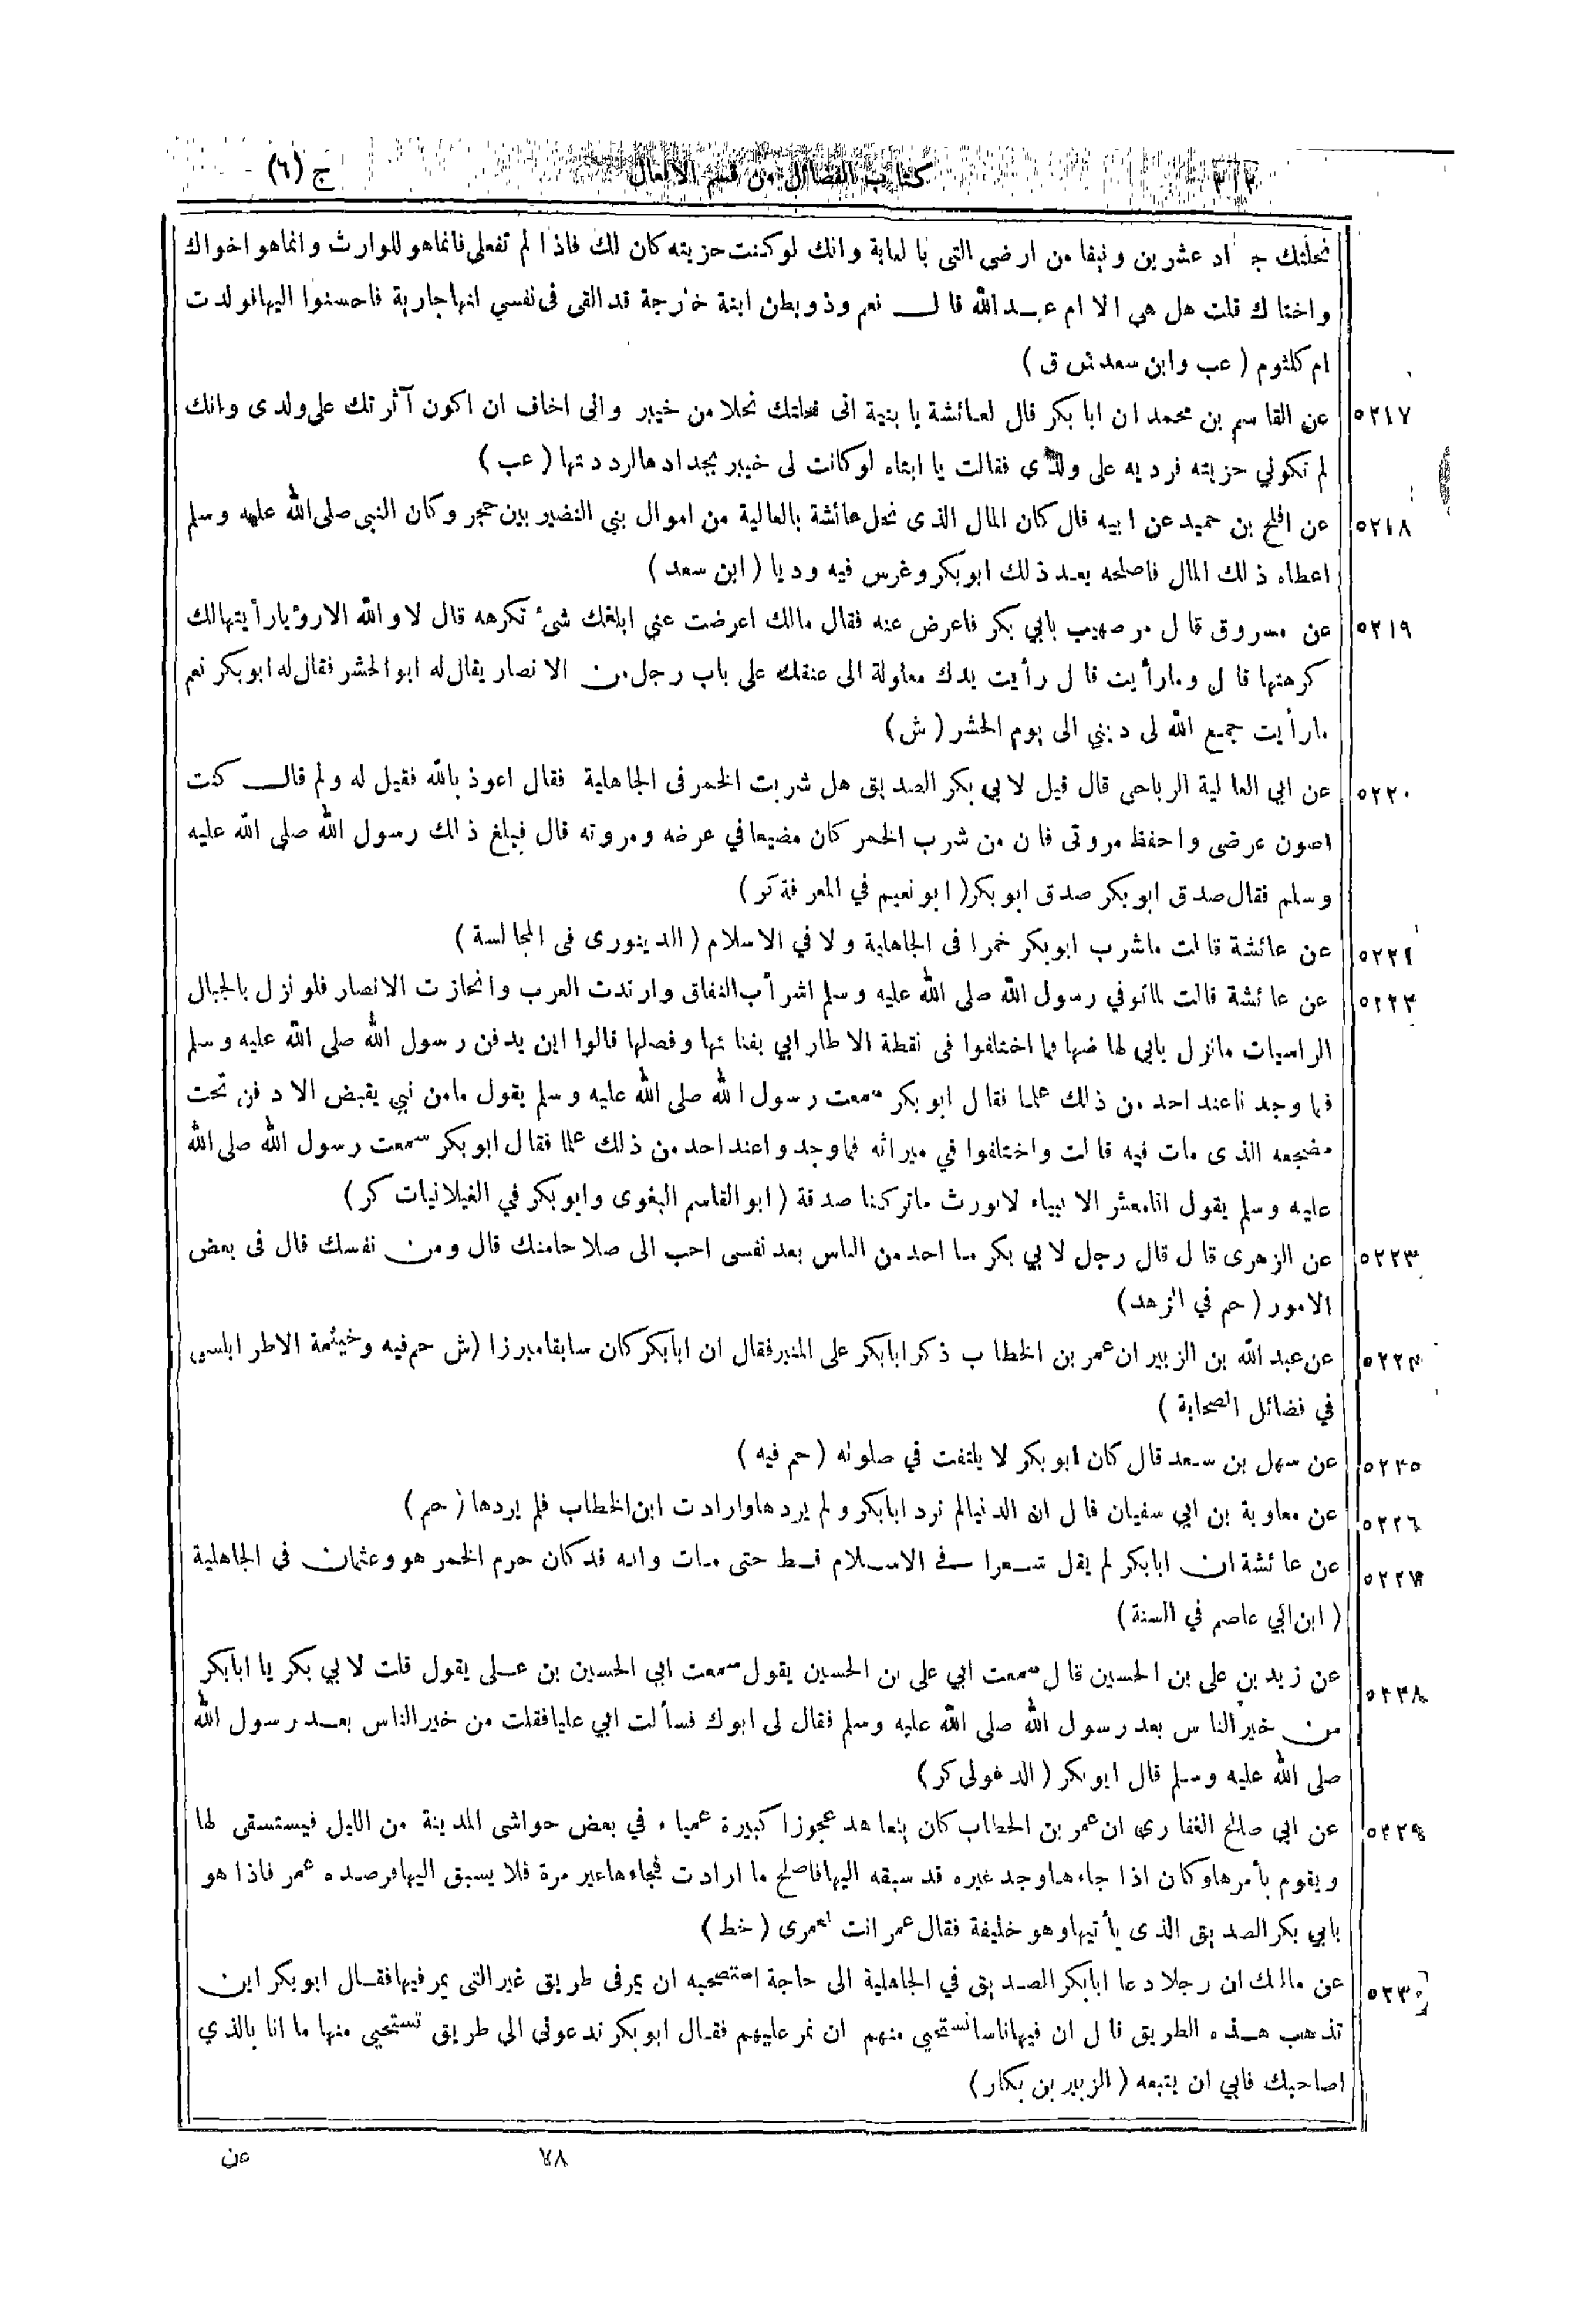 ٣١٢ كتاب الفضائل من قسم الافعال ج (٦)
نحلتك جاد عشرين وقيفا من ارضى التى با لعابة وانك لو كنت حزيته كان لك فاذا لم تفعلى فانماهو للوارث وانماهو اخواك
واختاك قلت هل هى الا ام عبد الله قال نعم وذو بطن ابنة خارجة قد القى فى نفسي انها جارية فاحسنوا اليها فولدت
ام كلثوم ( عب وابن سعد ش ق )
٥٢١٧ عن القاسم بن محمد ان ابا بكر قال لعائشة يا بنية انى نحلتك نحلا من خيبر وانى اخاف ان اكون آثرتك على ولدى وانك
لم تكوني حزيته فرديه على ولدى فقالت يا ابتاه لو كانت لى خيبر بجدادها لرددتها ( عب )
٥٢١٨ عن افلح بن حميد عن ابيه قال كان المال الذى نحل عائشة بالعالية من اموال بني النضير بين حجر وكان النبى صلى الله عليه وسلم
اعطاه ذلك المال فاصلحه بعد ذلك ابوبكر وغرس فيه وديا ( ابن سعد )
٥٢١٩ عن مسروق قال مر صهيب بابي بكر فاعرض عنه فقال مالك اعرضت عني ابلغك شئ تكرهه قال لا والله الا رؤيا رأيتها لك
كرهتها قال وما رأيت قال رأيت يدك مغلولة الى عنقك على باب رجل من الانصار يقال له ابو الحشر فقال له ابوبكر نعم
ما رأيت جمع الله لى ديني الى يوم الحشر ( ش )
٥٢٢٠ عن ابي العالية الرياحى قال قيل لابي بكر الصديق هل شربت الخمر فى الجاهلية فقال اعوذ بالله فقيل له ولم قال كنت
اصون عرضى واحفظ مروتى فان من شرب الخمر كان مضيعا في عرضه ومروته قال فبلغ ذلك رسول الله صلى الله عليه
وسلم فقال صدق ابوبكر صدق ابوبكر ( ابو نعيم في المعرفة كر )
٥٢٢١ عن عائشة قالت ماشرب ابوبكر خمرا فى الجاهلية ولا في الاسلام ( الدينورى فى المجالسة )
٥٢٢٢ عن عائشة قالت لما توفي رسول الله صلى الله عليه وسلم اشرأب النفاق وارتدت العرب وانحازت الانصار فلو نزل بالجبال
الراسيات مانزل بابى لهاضها فما اختلفوا فى نقطة الا طار ابي بفنائها وفصلها قالوا اين يدفن رسول الله صلى الله عليه وسلم
فما وجدنا عند احد من ذلك علما فقال ابو بكر سمعت رسول الله صلى الله عليه وسلم يقول مامن نبي يقبض الا دفن تحت
مضجعه الذى مات فيه قالت واختلفوا في ميراثه فما وجدوا عند احد من ذلك علما فقال ابوبكر سمعت رسول الله صلى الله
عليه وسلم يقول انا معشر الانبياء لانورث ماتركنا صدقة ( ابو القاسم البغوى وابو بكر في الغيلانيات كر )
٥٢٢٣ عن الزهرى قال قال رجل لابي بكر ما احد من الناس بعد نفسى احب الى صلاحا منك قال ومن نفسك قال فى بعض
الامور ( حم في الزهد )
٥٢٢٤ عن عبد الله بن الزبير ان عمر بن الخطاب ذكر ابابكر على المنبر فقال ان ابابكر كان سابقا مبرزا ( ش حم فيه وخيثمة الاطرابلسى
في فضائل الصحابة )
٥٢٢٥ عن سهل بن سعد قال كان ابو بكر لا يلتفت في صلوته ( حم فيه )
٥٢٢٦ عن معاوية بن ابي سفيان قال ان الدنيا لم ترد ابابكر ولم يردها وارادت ابن الخطاب فلم يردها ( حم )
٥٢٢٧ عن عائشة ان ابابكر لم يقل شعرا فى الاسلام قط حتى مات وانه قد كان حرم الخمر هو وعثمان فى الجاهلية
( ابن ابي عاصم في السنة )
٥٢٢٨ عن زيد بن على بن الحسين قال سمعت ابي على بن الحسين يقول سمعت ابى الحسين بن على يقول قلت لابي بكر يا ابابكر
من خير الناس بعد رسول الله صلى الله عليه وسلم فقال لى ابوك فسألت ابي عليا فقلت من خير الناس بعد رسول الله
صلى الله عليه وسلم قال ابو بكر ( الدغولى كر )
٥٢٢٩ عن ابي صالح الغفارى ان عمر بن الخطاب كان يتعاهد عجوزا كبيرة عمياء في بعض حواشى المدينة من الليل فيستسقى لها
ويقوم بأمرها وكان اذا جاءها وجد غيره قد سبقه اليها فاصلح ما ارادت فجاءها غير مرة فلا يسبق اليها فرصده عمر فاذا هو
بابي بكر الصديق الذى يأتيها وهو خليفة فقال عمر انت لعمرى ( خط )
٥٢٣٠ عن مالك ان رجلا دعا ابابكر الصديق في الجاهلية الى حاجة استصحبه ان يمر فى طريق غير التى يمر فيها فقال ابوبكر اين
تذهب هذه الطريق قال ان فيها ناسا نستحيى منهم ان نمر عليهم فقال ابوبكر تدعونى الى طريق تستحيى منها ما انا بالذي
اصاحبك فابي ان يتبعه ( الزبير بن بكار )
٧٨ عن